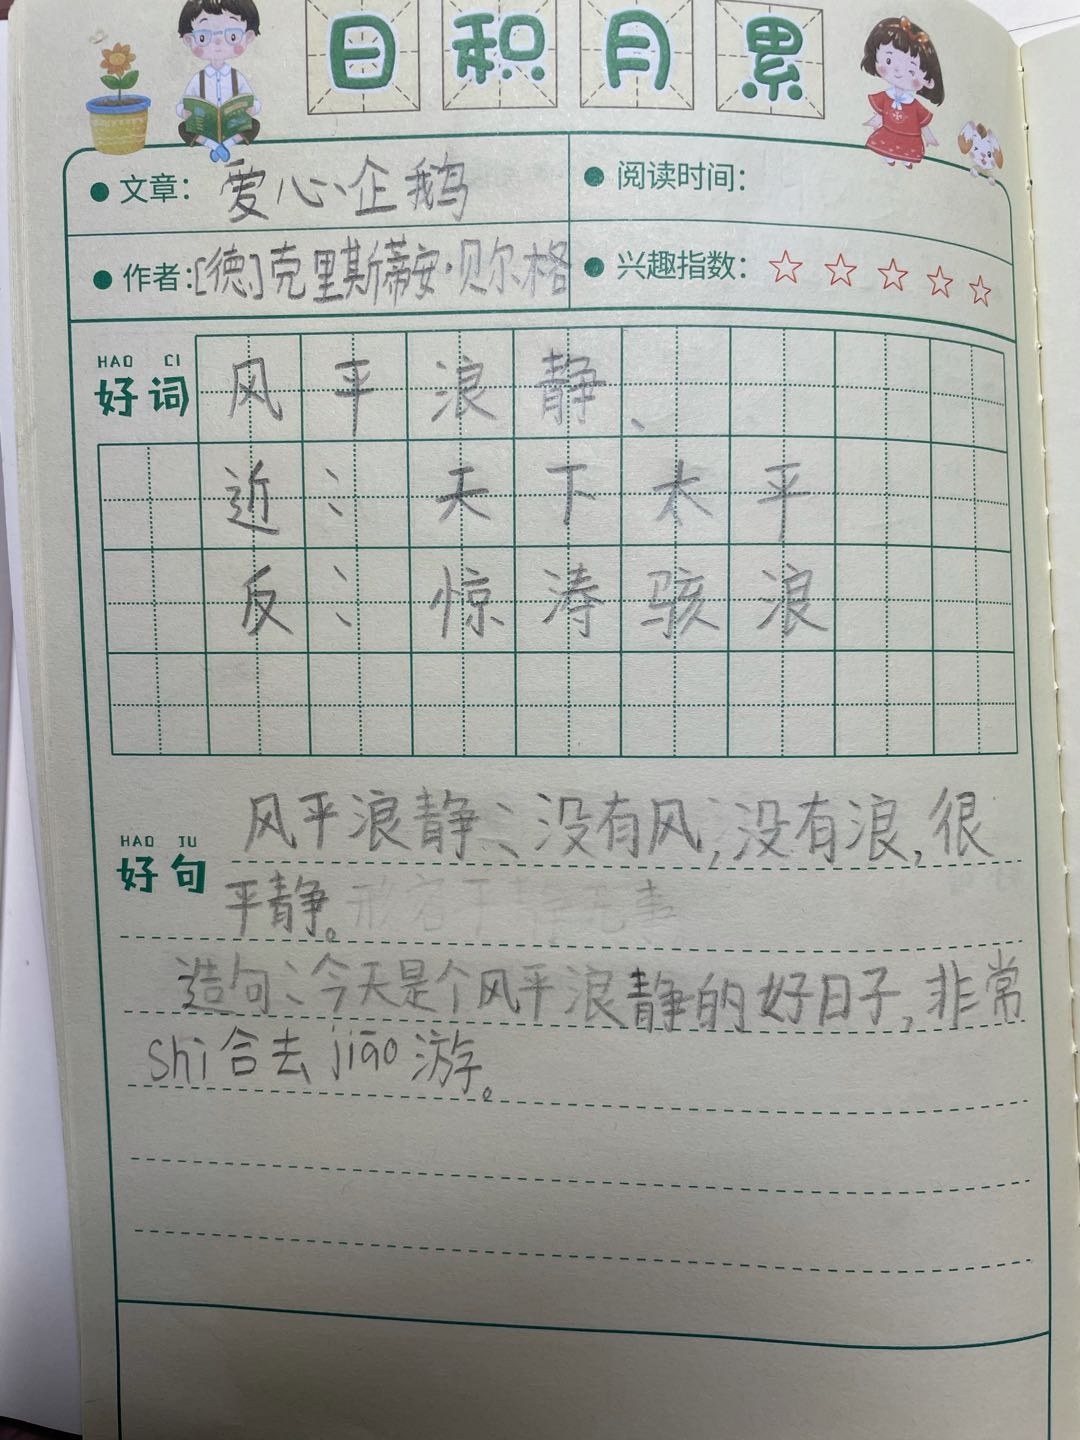 日积月累
文章：爱心企鹅
阅读时间：
作者：[德]克里斯蒂安·贝尔格
兴趣指数：
HAO CI
好词
风平浪静、
近：天下太平
反：惊涛骇浪
HAO JU
好句
风平浪静：没有风，没有浪，很
平静。形容平静无事
造句：今天是个风平浪静的好日子，非常
shì合去jiāo游。